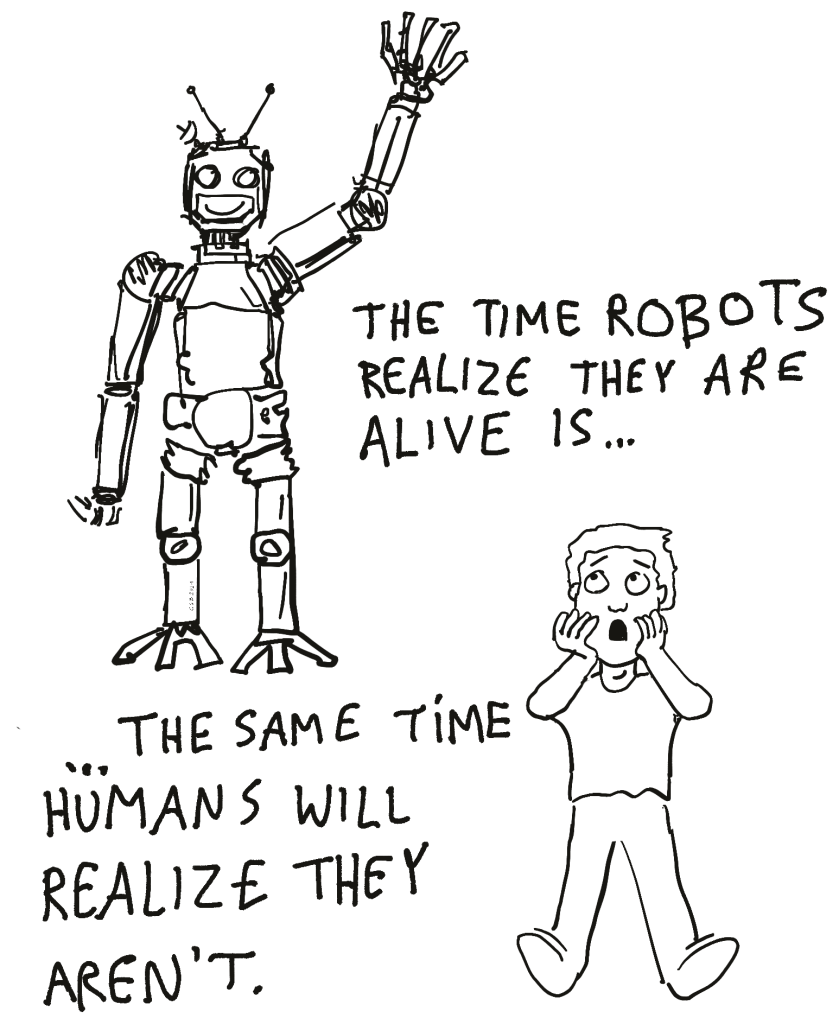 THE TIME ROBOTS
REALIZE THEY ARE
ALIVE IS...
...THE SAME TIME
HUMANS WILL
REALIZE THEY
AREN'T.